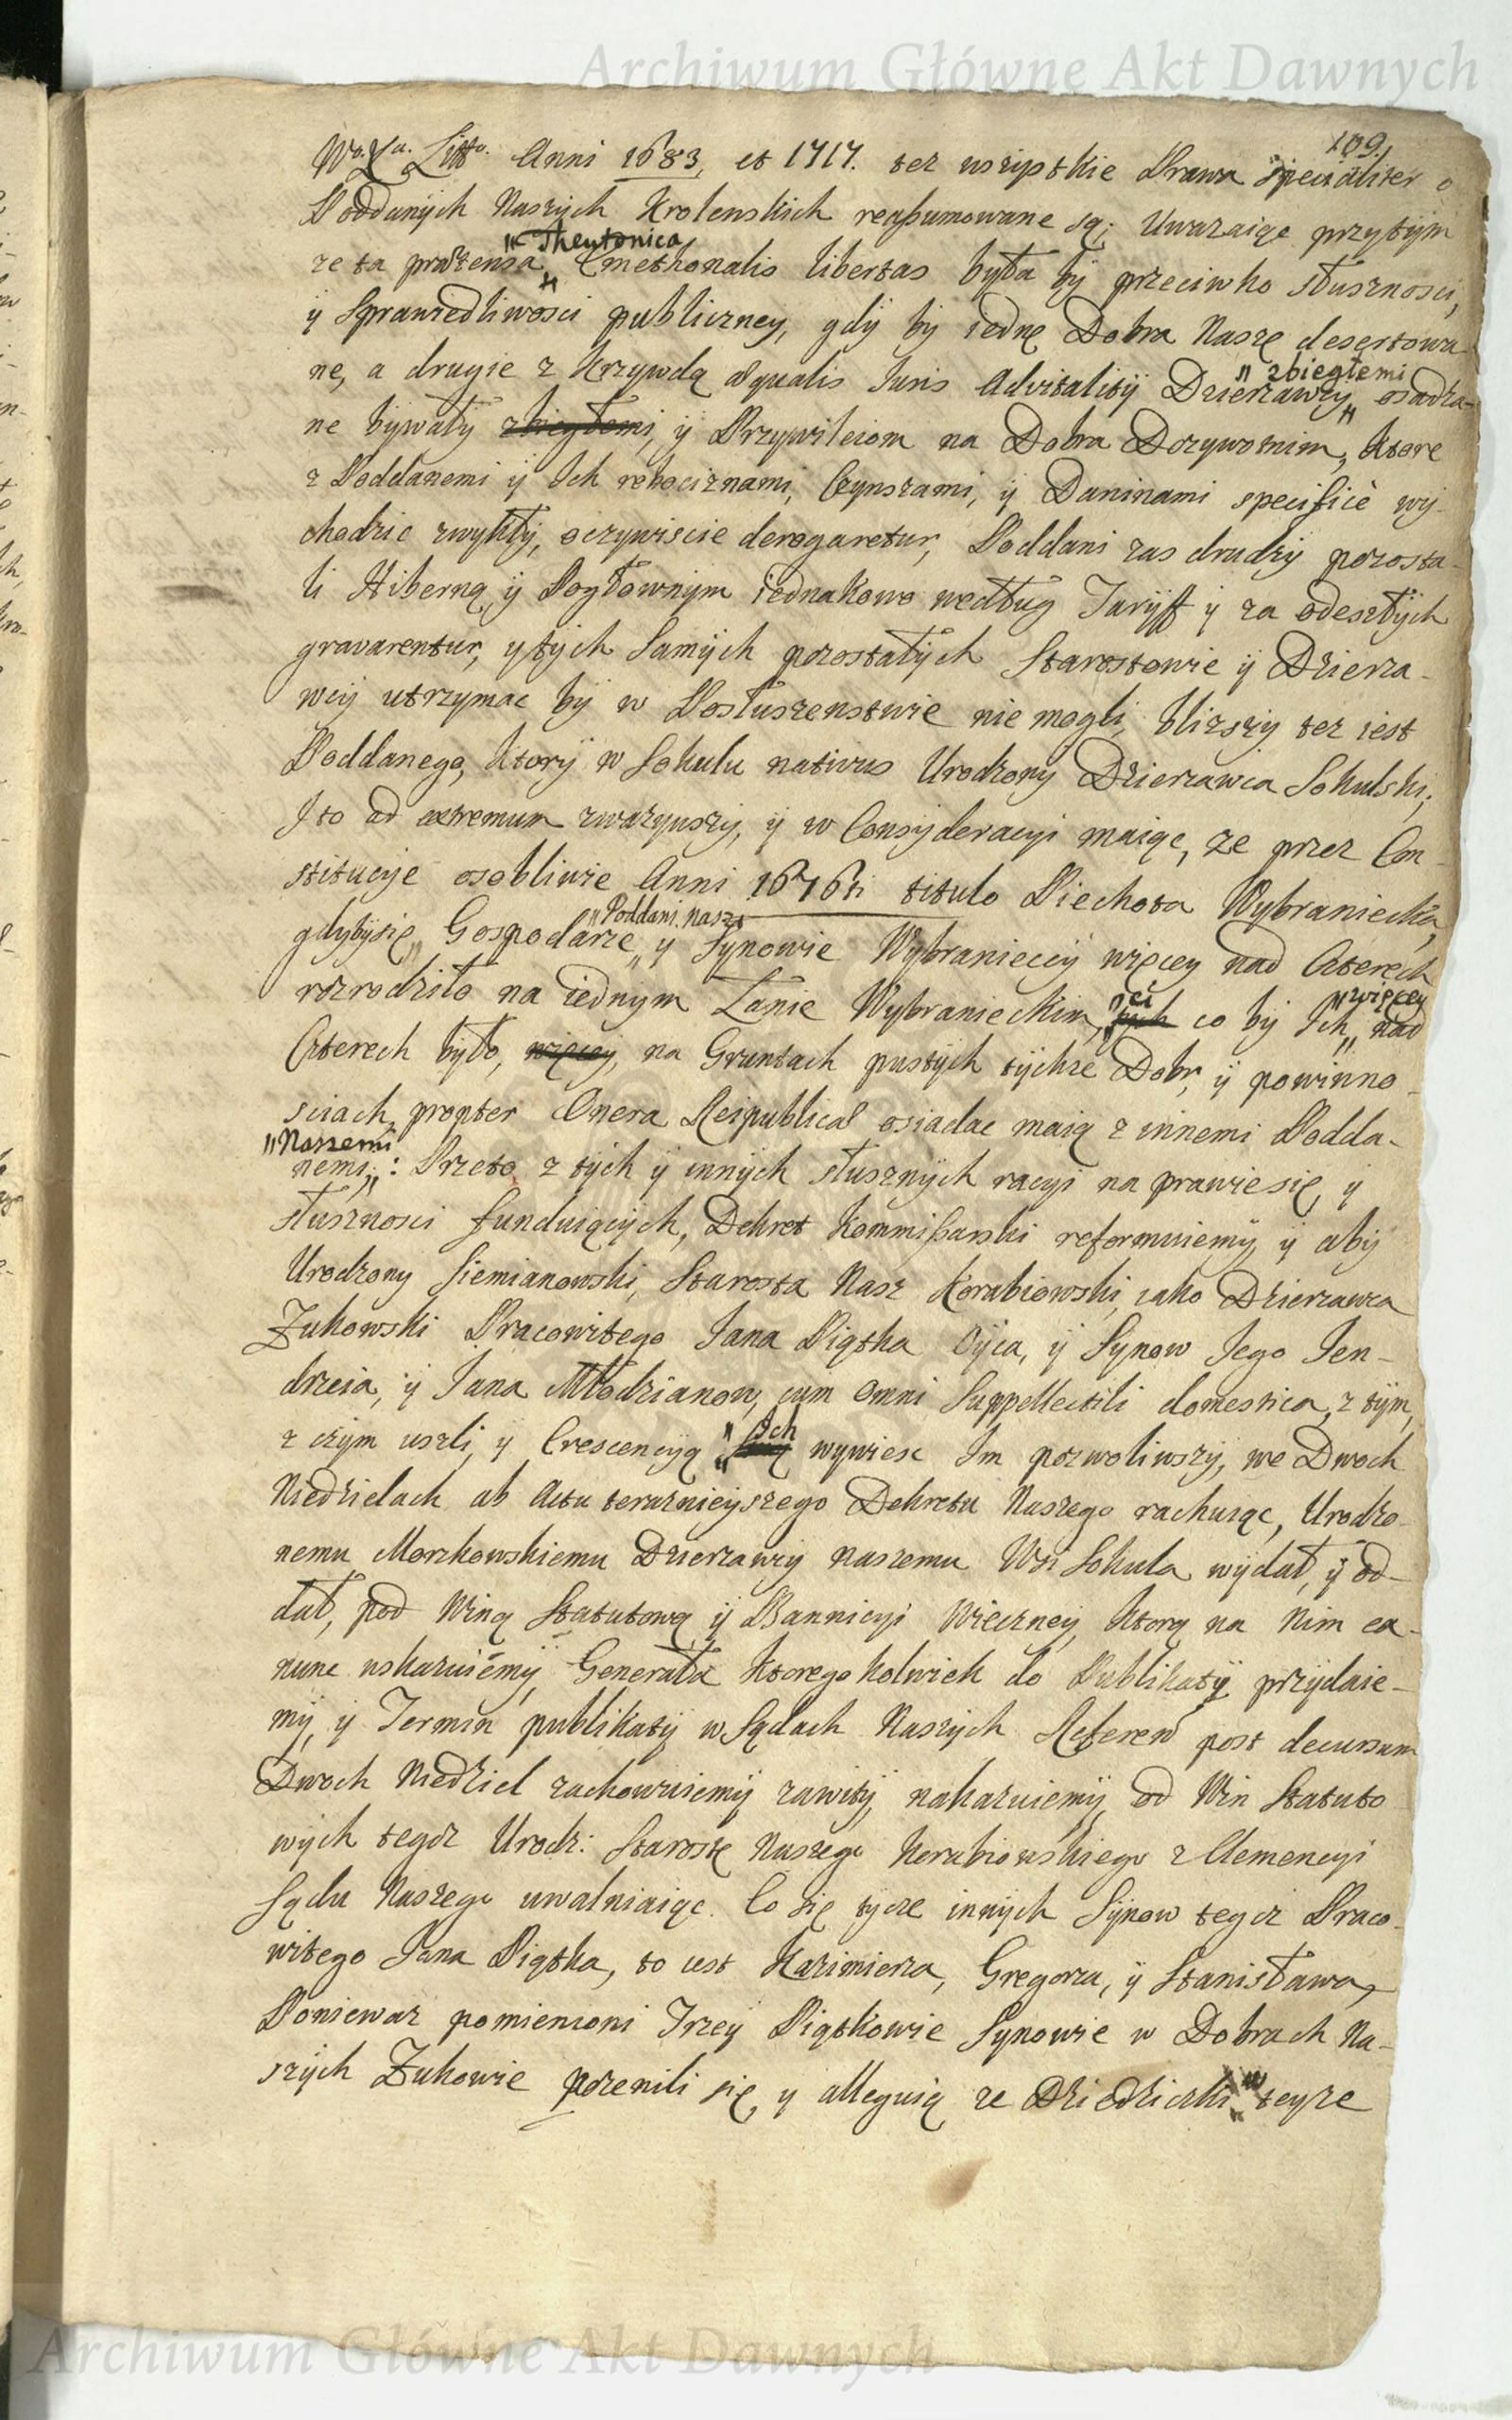 Archiwum Główne Akt Dawnych
109.
Wo. Xa. Litto. Anni 1683, et 1717. tez wszystkie Prawa specialiter o
Poddanych Naszych Krolenskich reassumowane są; Uwazaiąc przytym
"Theutonica
ze ta prætensa Cmethonalis libertas była by przeciwko słusznosci,
y Sprawiedliwosci publiczney, gdy by iedne Dobra Nasze desertowa-
"zbiegłemi
ne, a drugie z Krzywdą æqualis Iuris Advitality Dzierzawcy, osadza-
ne bywały zbiegłemi, y Przywileiom na Dobra Dozywotnim, Ktore
z Poddanemi y Ich robociznami, Czynszami, y Daninami specificè wy-
chodzic zwykły, oczywiscie derogaretur, Poddani zas drudzy pozosta-
li Hiberną, y Pogłownym iednakowo według Taryff y za odeszłych
gravarentur, y tych samych pozostałych Starostowie y Dzierza-
wcy utrzymac by w Posłuszenstwie nie mogli, blizszy tez iest
Poddanego, Ktory w Sokulu nativus Urodzony Dzierzawca Sokulski;
I to ad extremum zwazywszy, y w Consyderacyi maiąc, ze przez Con-
stitucyje osobliwie Anni 1676ti titulo Piechota Wybraniecka,
"Poddani naszi
gdybysię, Gospodarze, y Synowie Wybranieccy więcey nad Czterech
rozrodziło na iednym Łanie Wybranieckim, "ci tych co by Ich, "więcey nad
Czterech było, więcey, na Gruntach pustych tychze Dobr, y powinno-
sciach, propter Onera Reipublicæ osiadac maią z innemi Podda-
"Naszemi
nemi,,: Przeto z tych y innych słusznych racyi na prawie się, y
słusznosci funduiących, Dekret Kommissarski reformuiemy, y aby
Urodzony Siemianowski, Starosta Nasz Korabiowski, iako Dzierzawca
Zukowski Pracowitego Jana Piątka Oyca, y Synow Jego Jen-
drzeia, y Jana Młodzianow, cum omni Suppellectili domestica, z tym,
z czym uszli, y Crescencyą "Ich swą wywiesc Im pozwoliwszy, we Dwoch
Niedzielach ab Actu teraznieyszego Dekretu Naszego rachuiąc, Urodzo-
nemu Morzkowskiemu Dzierzawcy naszemu Wsi Sokula wydał, y od-
dał, pod Winą Statutową, y Bannicyi Wieczney, Ktorą na Nim ex
nunc wskazuiemy, Generała Ktoregokolwiek do Publikaty przydaie-
my, y Termin publikaty w Sądach Naszych Referen post decursum
Dwoch Niedziel zachowuiemy zawity, nakazuiemy, od Win Statuto
wych tegoz Urodz: Starostę Naszego Korabiowskiego z Clemencyi
Sądu Naszego uwalniaiąc. Co się tycze innych Synow tegoz Praco-
witego Jana Piątka, to iest Kazimierza, Gregorza, y Stanisława,
Poniewaz pomienioni Trzey Piątkowie Synowie w Dobrach Na-
szych Zukowie pozenili się, y alleguią ze Dziedziczki w teyze
Archiwum Główne Akt Dawnych